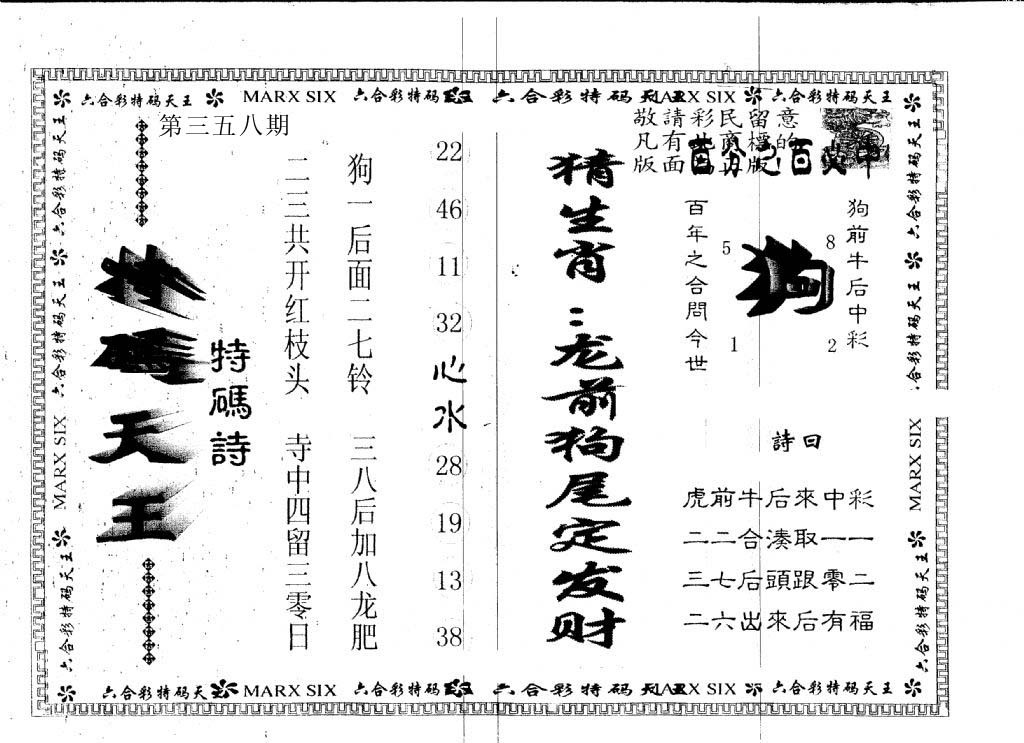 六合彩特码天王 MARX SIX 六合彩特码 六合彩特码天王 MARX SIX 六合彩特码天王
第三五八期
敬請彩民留意
凡有 商標的
版面 版
特碼天王
特碼詩
狗一后面二七铃 三八后加八龙肥
二三共开红枝头 寺中四留三零日
22
46
11
32
心水
28
19
13
38
猜生肖：龙前狗尾定发财
百分之百 中
狗前牛后中彩
百年之合問今世
狗
5
8
1
2
詩曰
虎前牛后來中彩
二二合湊取一一
三七后頭跟零二
二六出來后有福
六合彩特码天王 MARX SIX 六合彩特码天王
六合彩特码天王 六合彩特码天王 MARX SIX 六合彩特码天王
六合彩特码天王 MARX SIX 六合彩特码 六合彩特码天王 MARX SIX 六合彩特码天王